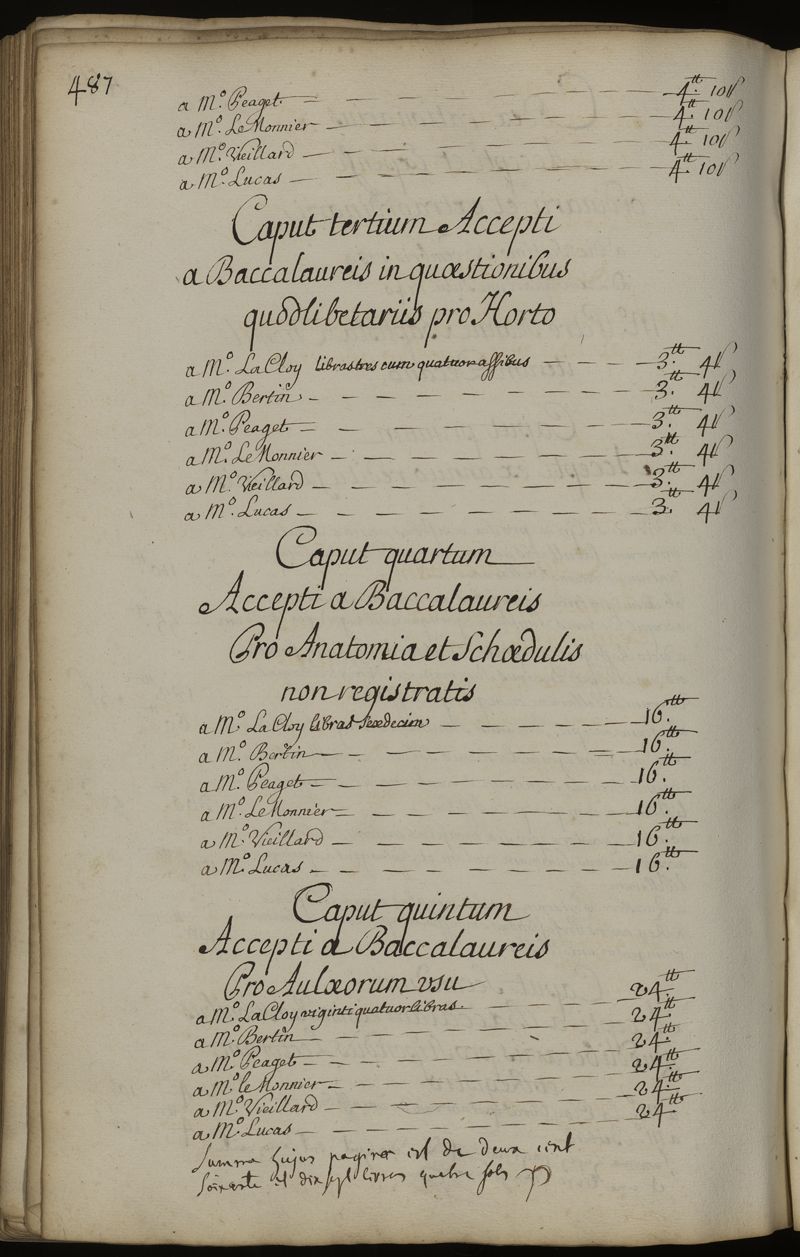 487
a M.º Peaget — 4.tt 10ſ
a M.º Le Monnier — 4.tt 10ſ
a M.º Vieillard — 4.tt 10ſ
a M.º Lucas — 4.tt 10ſ
Caput tertium Accepti
a Baccalaureis in quæstionibus
quodlibetariis pro Horto
a M.º La Cloy libras tres cum quatuor assibus — 3.tt 4ſ
a M.º Bertin — 3.tt 4ſ
a M.º Peaget — 3.tt 4ſ
a M.º Le Monnier — 3.tt 4ſ
a M.º Vieillard — 3.tt 4ſ
a M.º Lucas — 3.tt 4ſ
Caput quartum
Accepti a Baccalaureis
Pro Anatomia et Schœdulis
non registratis
a M.º La Cloy libras sexdecim — 16.tt
a M.º Bertin — 16.tt
a M.º Peaget — 16.tt
a M.º Le Monnier — 16.tt
a M.º Vieillard — 16.tt
a M.º Lucas — 16.tt
Caput quintum
Accepti a Baccalaureis
Pro Aulæorum usu
a M.º La Cloy viginti quatuor libras — 24.tt
a M.º Bertin — 24.tt
a M.º Peaget — 24.tt
a M.º le Monnier — 24.tt
a M.º Vieillard — 24.tt
a M.º Lucas — 24.tt
Summa hujus paginæ est de deux cent
soixante et dix sept livres quatre sols